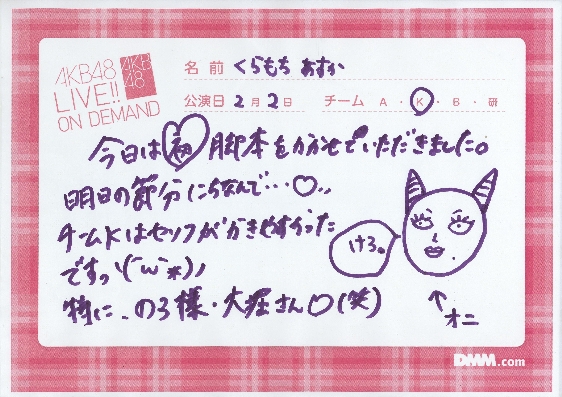 AKB48
LIVE!!
ON DEMAND
AKB
48
名前 くらもち あすか
公演日 2月2日 チーム A・K・B・研
今日は初脚本をかかせていただきました。
明日の節分にちなんで…♡、、
チームKはセリフがかきやすかった
ですっ\(´ω`*)ノ
特に、のろ様・大堀さん○(笑)
けろ。
↑
オニ
DMM.com